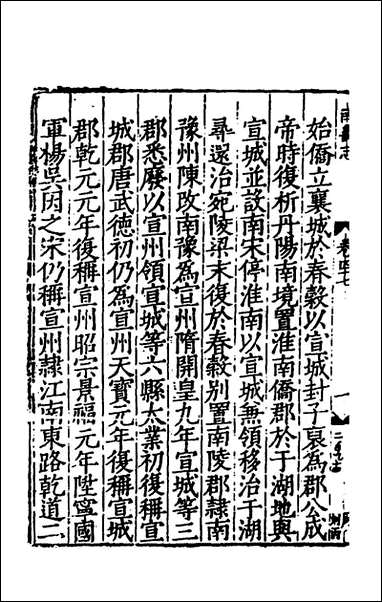 始僑立襄城於春穀以宣城封子裒為郡公成
帝時復析丹陽南境置淮南僑郡於于湖地與
宣城並設南宋停淮南以宣城無領移治于湖
尋還治宛陵梁末復於春穀別置南陵郡隷南
豫州陳改南豫為宣州隋開皇九年宣城等三
郡悉廢以宣州領宣城等六縣大業初復稱宣
城郡唐武徳初仍為宣州天寶元年復稱宣城
郡乾元元年復稱宣州昭宗景福元年陞寧國
軍楊吳因之宋仍稱宣州隷江南東路乾道二